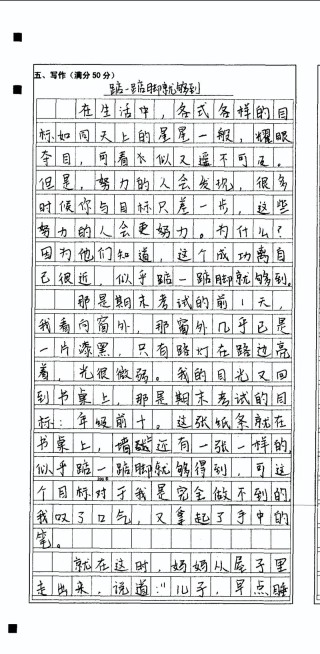 五、写作（满分50分）
踮一踮脚就够到
在生活中，各式各样的目
标如同天上的星星一般，耀眼
夺目，可看似又遥不可及。
但是，努力的人会发现，很多
时候你与目标只差一步，这些
努力的人会更努力。为什么？
因为他们知道，这个成功离自
己很近，似乎踮一踮脚就够到。
那是期末考试的前1天，
我看向窗外，那窗外几乎已是
一片漆黑，只有路灯在路边亮
着，光很微弱。我的目光又回
到书桌上，那是期末考试的目
标：年级前十。这张纸条就在
书桌上，墙近有一张一样的，
似乎踮一踮脚就够得到，可这
个目标对于我是完全做不到的
我叹了口气，又拿起了手中的
笔。
就在这时，妈妈从屋子里
走出来，说道："儿子，早点睡